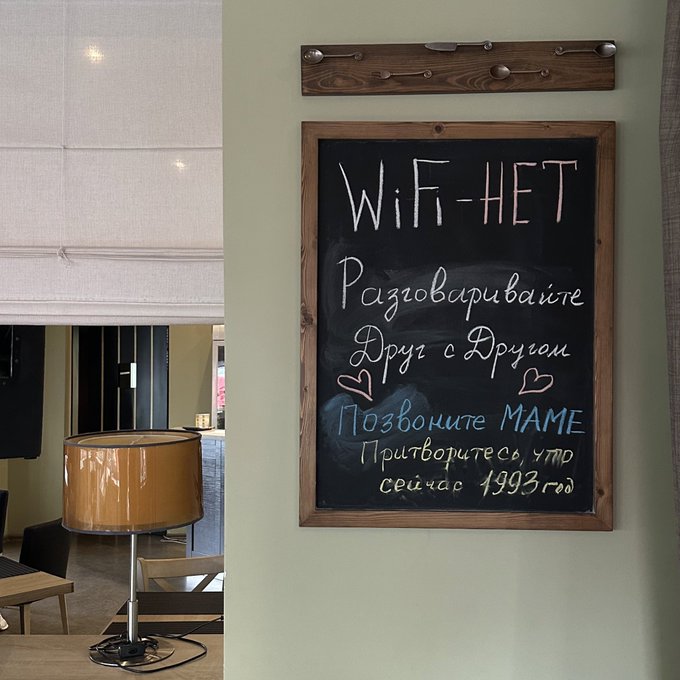 WiFi - НЕТ
Разговаривайте
Друг с Другом
Позвоните МАМЕ
Притворитесь, что
сейчас 1993 год